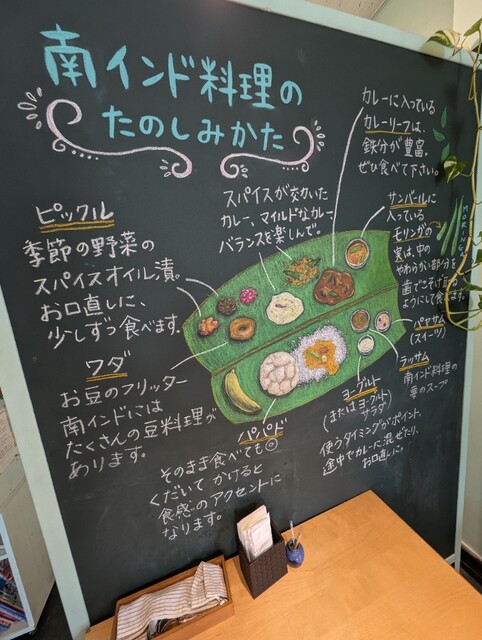 南インド料理の
たのしみかた
ピックル
季節の野菜の
スパイスオイル漬。
お口直しに、
少しずつ食べます。
ワダ
お豆のフリッター
南インドには
たくさんの豆料理が
あります。
スパイスが効いた
カレー、マイルドなカレー
バランスを楽しんで。
カレーに入っている
カレーリーフは、
鉄分が豊富。
ぜひ食べて下さい。
サンバールに
入っている
モリンガの
実は、中の
やわらかい部分を
歯でこそげ取る
ように食べます。
MORINGA
パヤサム
(スイーツ)
ラッサム
南インド料理の
スープ
ヨーグルト
(またはヨーグルト
サラダ)
使うタイミングがポイント。
途中でカレーに混ぜたり、
お口直しに。
パパド
そのまま食べても◎
くだいて かけると
食感のアクセントに
なります。